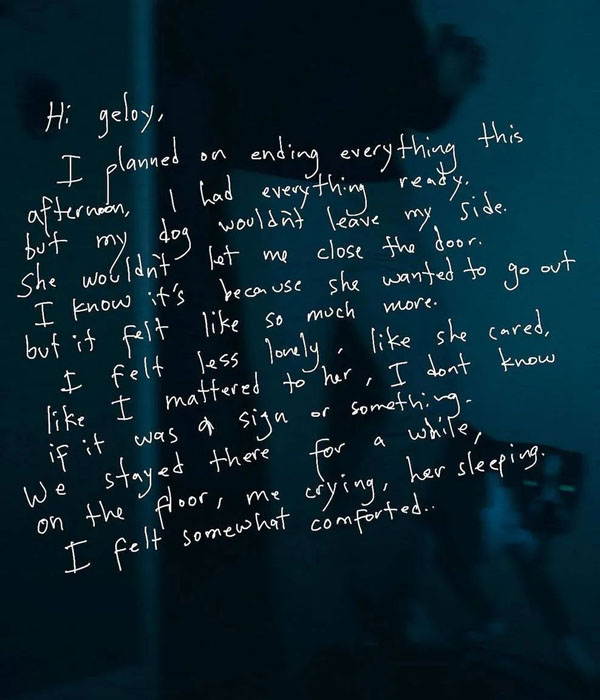 Hi geloy,
I planned on ending everything this
afternoon, I had everything ready.
but my dog wouldn't leave my side.
She wouldn't let me close the door.
I know it's because she wanted to go out
but it felt like so much more.
I felt less lonely, like she cared,
like I mattered to her, I dont know
if it was a sign or something.
We stayed there for a while,
on the floor, me crying, her sleeping.
I felt somewhat comforted..